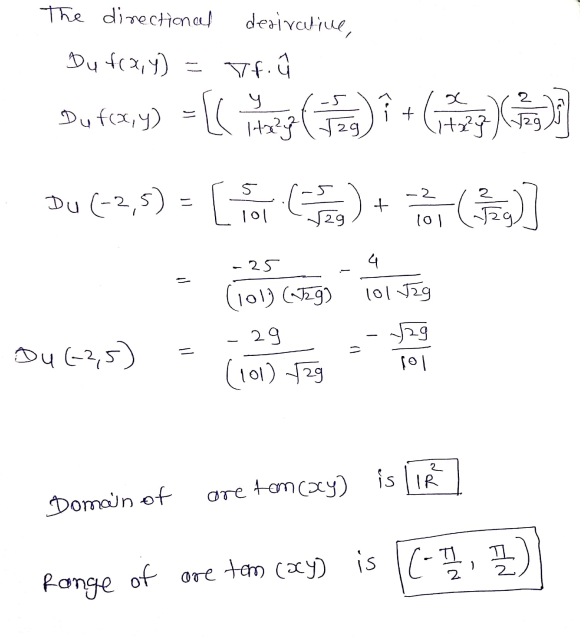 The directional derivative,
Du f(x,y) = ∇f.û
Du f(x,y) = [(y/(1+x²y²) (-5/√29) î + (x/(1+x²y²)) (2/√29) ĵ]
Du (-2,5) = [5/101 · (-5/√29) + -2/101 (2/√29)]
= -25/((101) (√29)) - 4/(101 √29)
Du (-2,5) = -29/((101) √29) = -√29/101
Domain of arc tan (xy) is ℝ²
Range of arc tan (xy) is (-π/2, π/2)